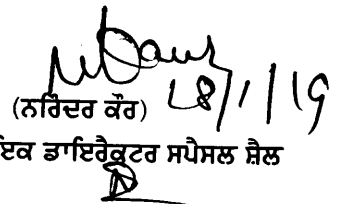 18/1/19
(ਨਰਿੰਦਰ ਕੌਰ)
ਇਕ ਡਾਇਰੈਕਟਰ ਸਪੈਸਲ ਸ਼ੈਲ